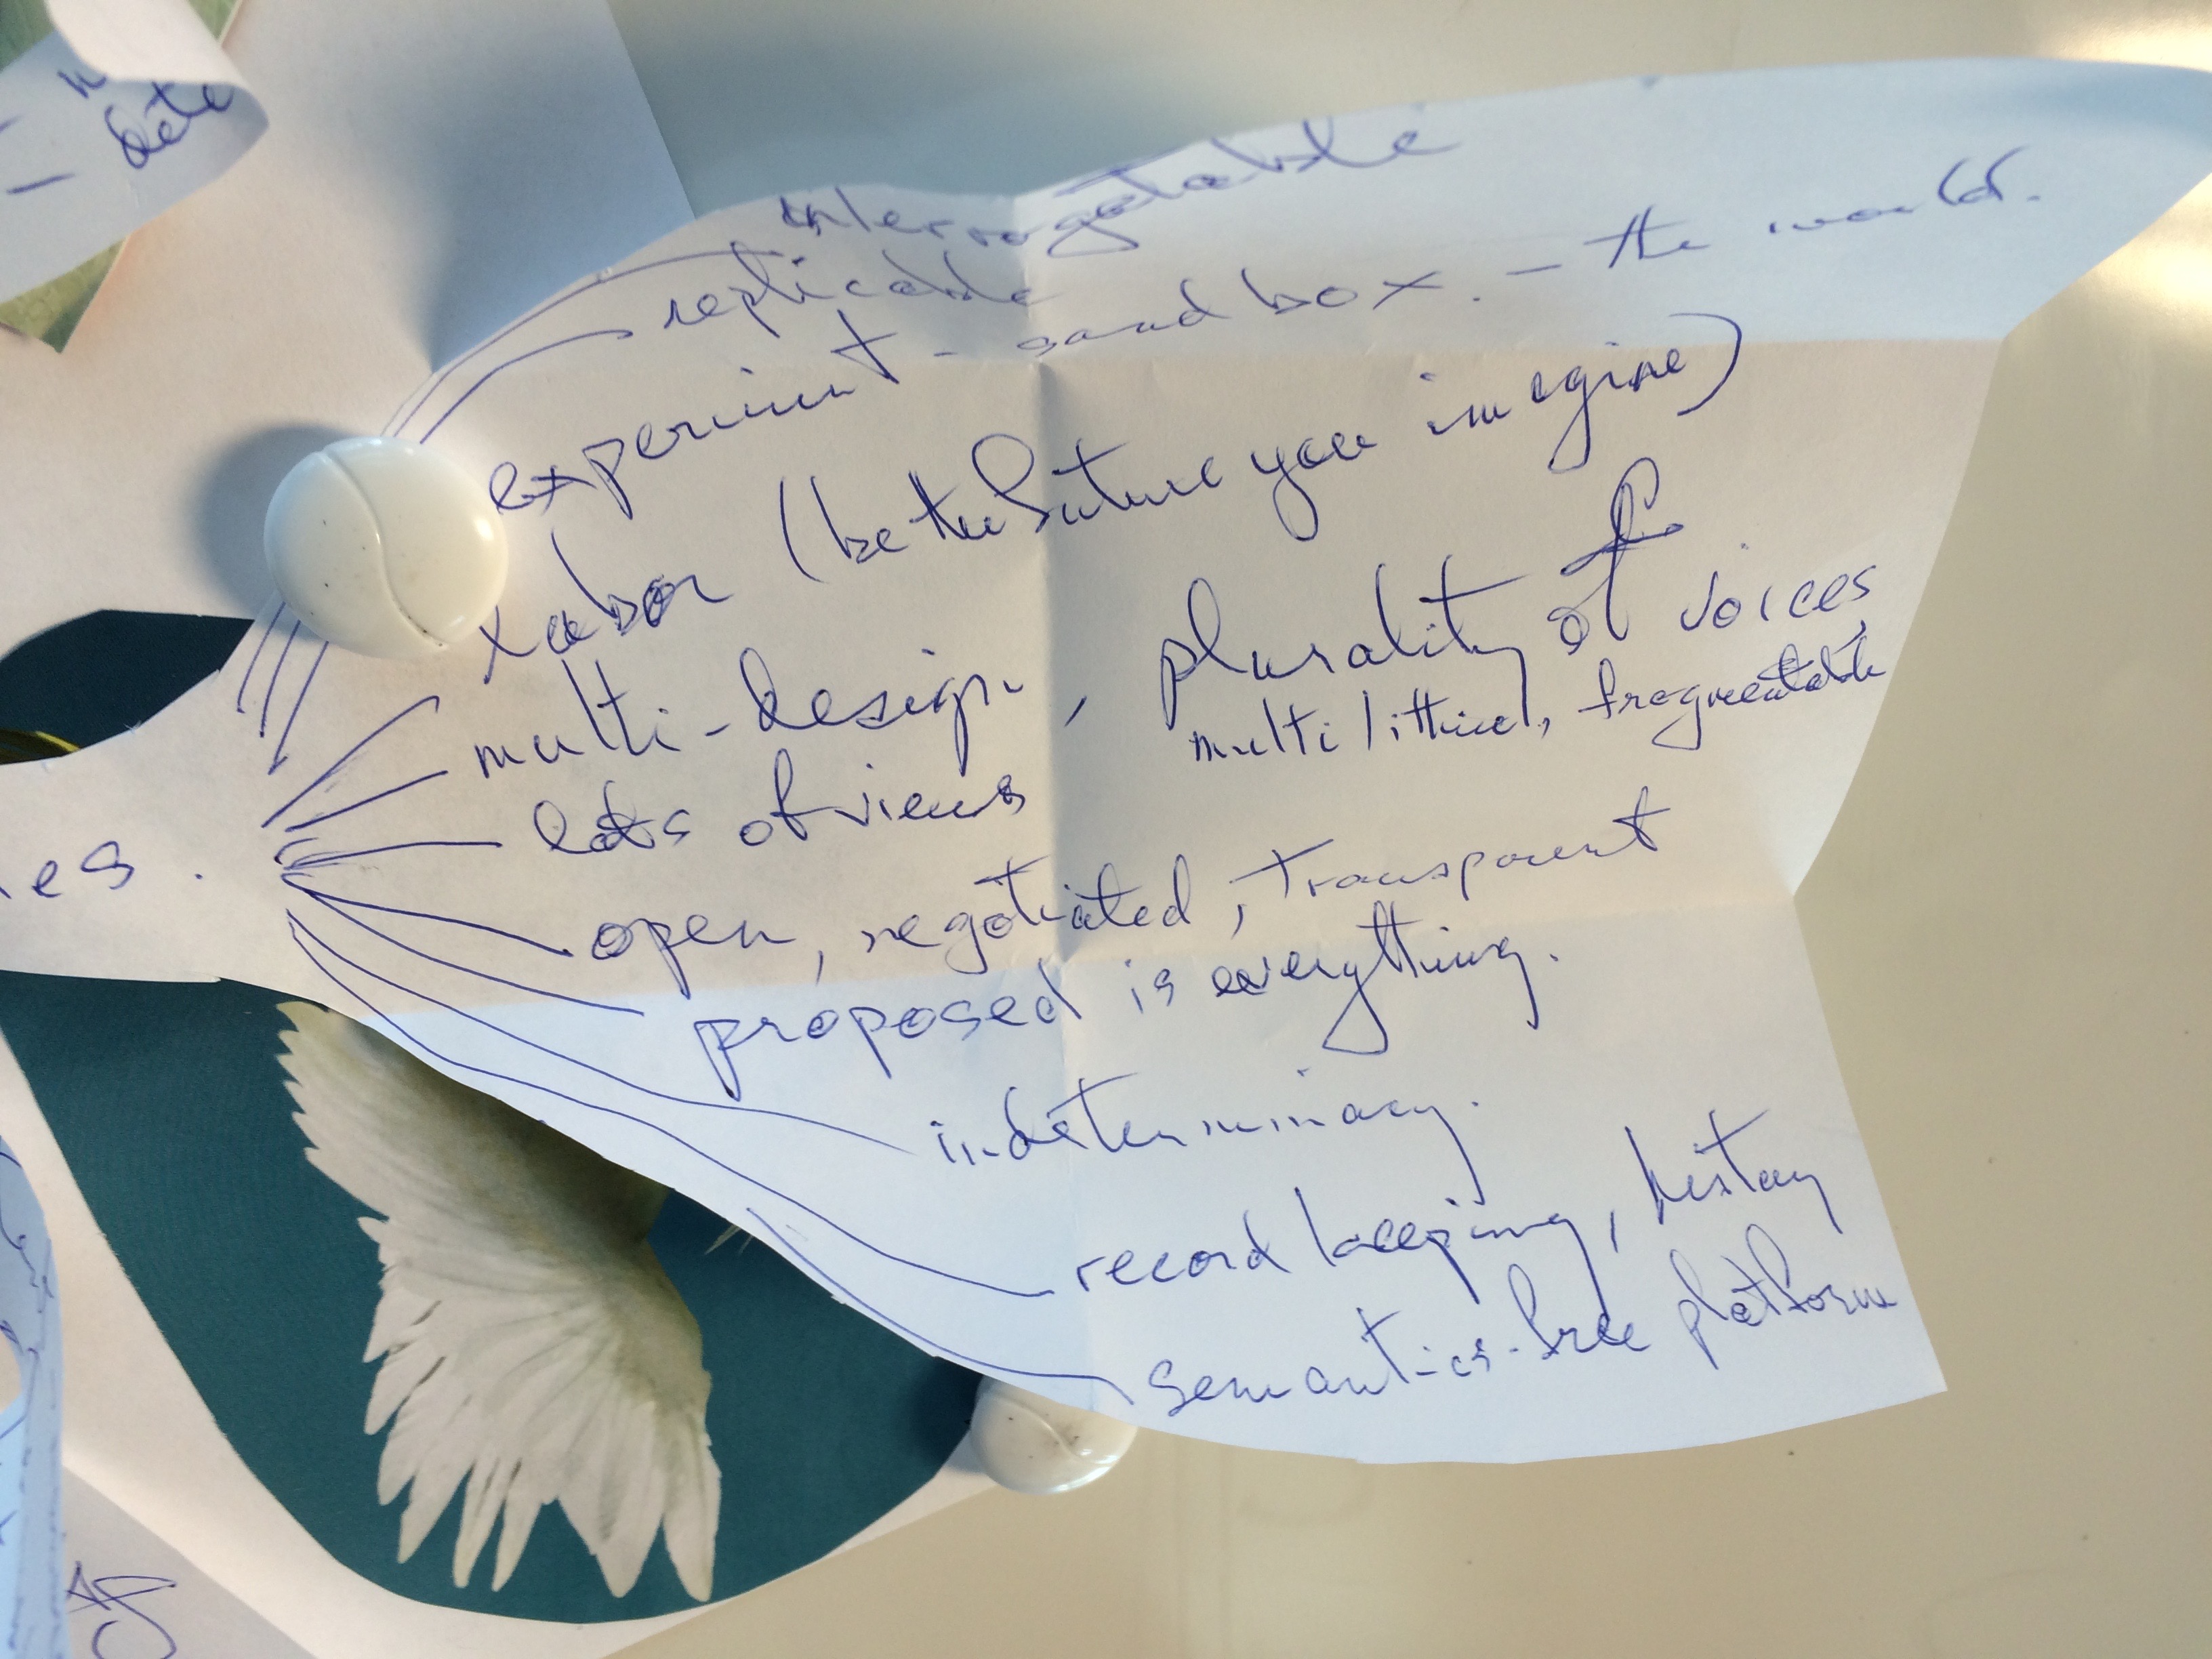 date
interrogatable
replicable
experiment - sandbox. - the world.
Labor (better future you imagine)
multi-design, plurality of voices,
multi fragmentable
lots of views
es.
open, negotiated, transparent
proposed is everything.
indeterminacy.
record keeping, history
semantics-free platform